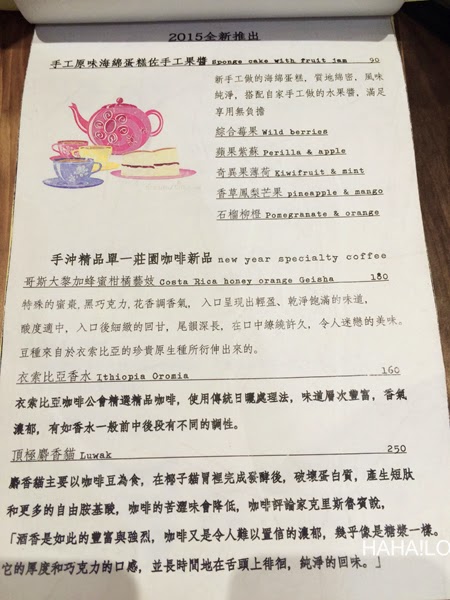 2015全新推出
手工原味海綿蛋糕佐手工果醬 Sponge cake with fruit jam 90
新手工做的海綿蛋糕，質地綿密，風味
純淨，搭配自家手工做的水果醬，滿足
享用無負擔
綜合莓果 Wild berries
蘋果紫蘇 Perilla & apple
奇異果薄荷 Kiwifruit & mint
香草鳳梨芒果 pineapple & mango
石榴柳橙 Pomegranate & orange
手沖精品單一莊園咖啡新品 new year specialty coffee
哥斯大黎加蜂蜜柑橘藝妓 Costa Rica honey orange Geisha 180
特殊的蜜棗,黑巧克力,花香調香氣， 入口呈現出輕盈、乾淨飽滿的味道，
酸度適中，入口後細緻的回甘，尾韻深長，在口中纏繞許久，令人迷戀的美味。
豆種來自於衣索比亞的珍貴原生種所衍伸出來的。
衣索比亞香水 Ithiopia Oromia 160
衣索比亞咖啡公會精選精品咖啡，使用傳統日曬處理法，味道層次豐富，香氣
濃郁，有如香水一般前中後段有不同的調性。
頂極麝香貓 Luwak 250
麝香貓主要以咖啡豆為食，在椰子貓胃裡完成發酵後，破壞蛋白質，產生短肽
和更多的自由胺基酸，咖啡的苦澀味會降低，咖啡評論家克里斯魯賓說，
「酒香是如此的豐富與強烈，咖啡又是令人難以置信的濃郁，幾乎像是糖漿一樣。
它的厚度和巧克力的口感，並長時間地在舌頭上徘徊，純淨的回味。」
HAHA!LO